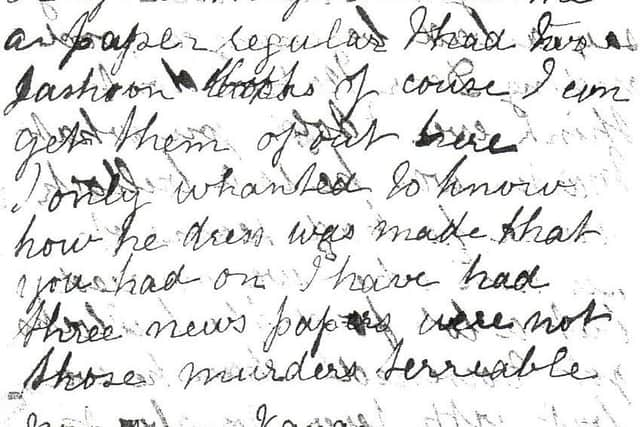 me
a paper regular I had two
fashion books of couse I can
get them of out here
I only whanted to know
how he dress was made that
you had on I have had
three news papers were not
those murders terreable